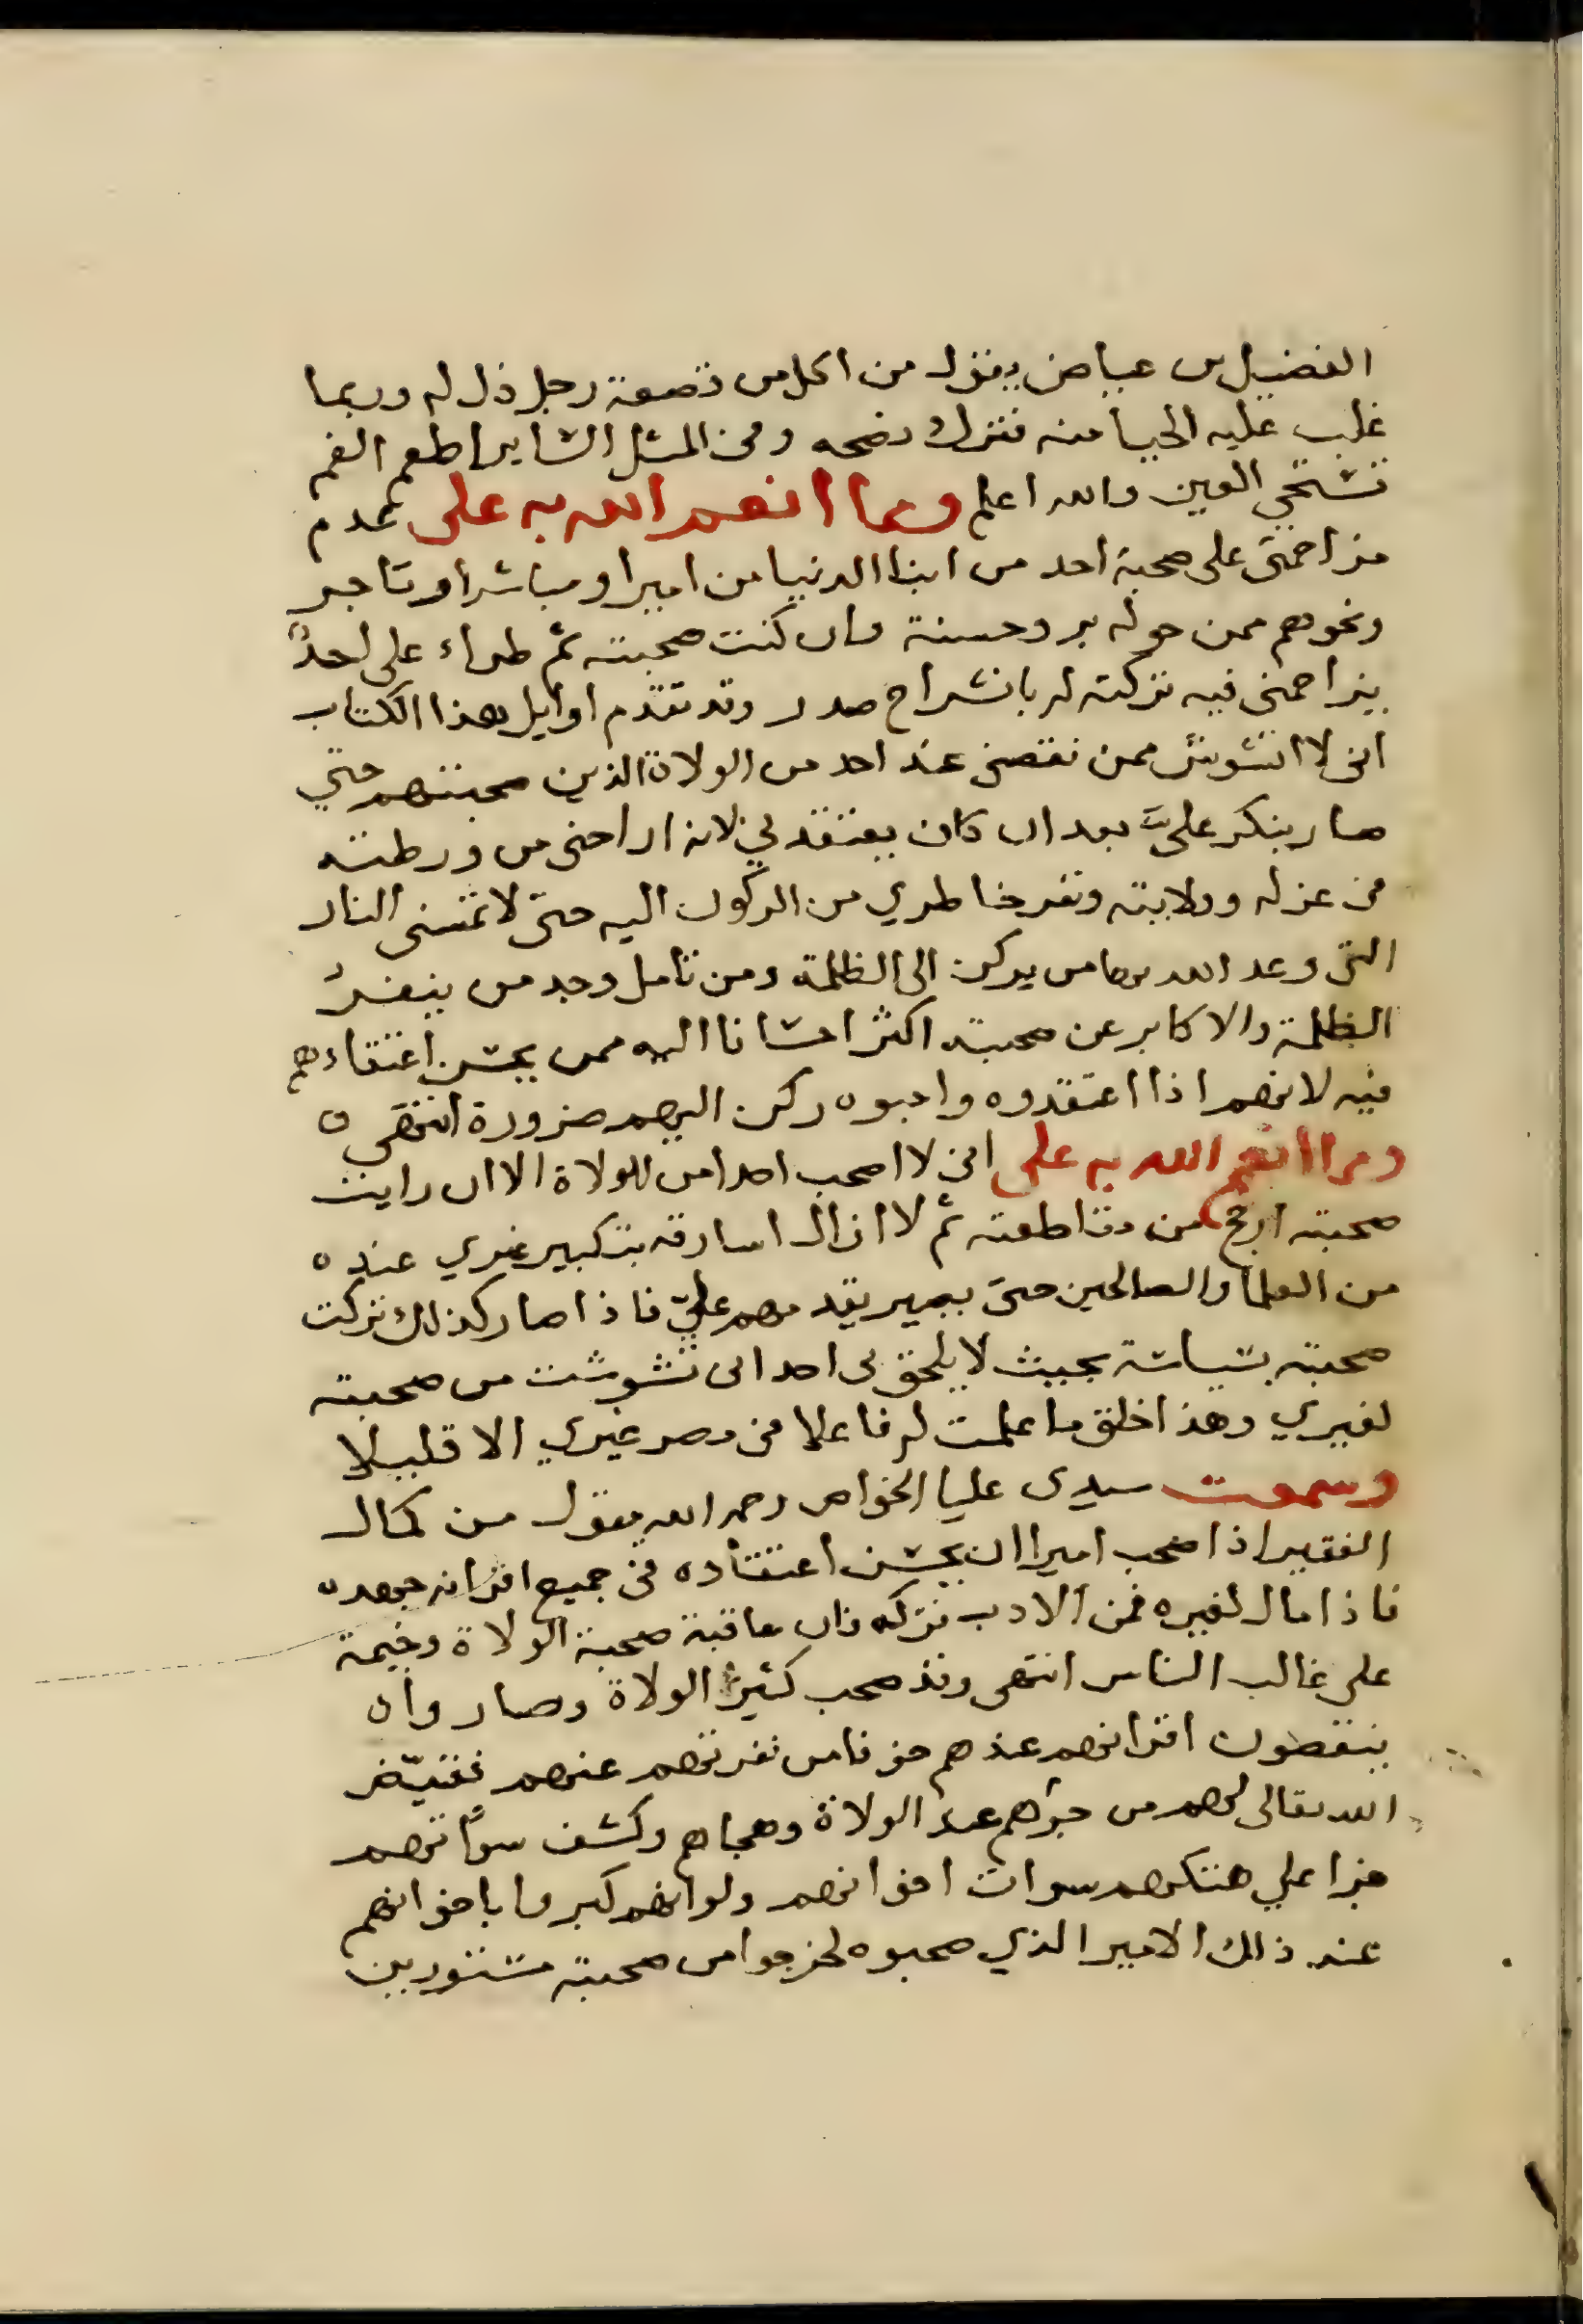 الفضيل بن عياض يقول من اكل من قصعة رجل ذل له وربما
غلب عليه الحيا منه فترك نصحه وفى المثل السايرا طعم الفم
تستحي العين والله اعلم ومما انعم الله به على عدم
مزاحمتى على صحبة احد من ابنا الدنيا من اميرا ومباشر او تاجر
ونحوهم ممن حوله بر وحسنة وان كنت صحبته ثم طراء على احدٌ
يزاحمنى فيه تركته له بانشراح صدر وقد تقدم اوايل هذا الكتاب
انى لا اتشوش ممن نقصنى عند احد من الولاة الذين صحبتهم حتي
صار ينكر علىّ بعد ان كان يعتقد في لانه اراحنى من ورطته
فى عزله وولايته ونفر خاطري من الركون اليه حتى لا تمسنى النار
التى وعد الله بها من يركن الى الظلمة ومن تامل وجد من ينفر
الظلمة والاكابر عن صحبته اكثر احسانا اليه ممن يحسن اعتقادهم
فيه لانهم اذا اعتقدوه واحبوه ركن اليهم ضرورة انتهى
ومما انعم الله به على انى لا اصحب احدا من الولاة الا ان رايت
صحبته ارجح من مقاطعته ثم لا ازال اسارقه بتكبير غيري عنده
من العلما والصالحين حتى يصير يقدمهم عليّ فاذا صار كذلك تركت
صحبته بسياسة بحيث لا يلحق بى احد انى تشوشت من صحبته
لغيري وهذا خلق ما علمت له فاعلا فى مصر غيري الا قليلا
وسمعت سيدى عليا الخواص رحمه الله يقول من كمال
الفقير اذا صحب اميرا ان يحسن اعتقاده فى جميع اقرانه جهده
فاذا مال لغيره فمن الادب تركه فان عاقبة صحبة الولاة وخيمة
على غالب الناس انتهى وقد صحب كثير الولاة وصاروا
ينقصون اقرانهم عندهم خوفا من نفرتهم عنهم فقيّض
الله تعالى لهم من جرهم عند الولاة وهجاهم وكشف سوآتهم
جزا علي هتكهم سوات اخوانهم ولو انهم كبروا باخوانهم
عند ذلك الامير الذي صحبوه لخرجوا من صحبته مستورين